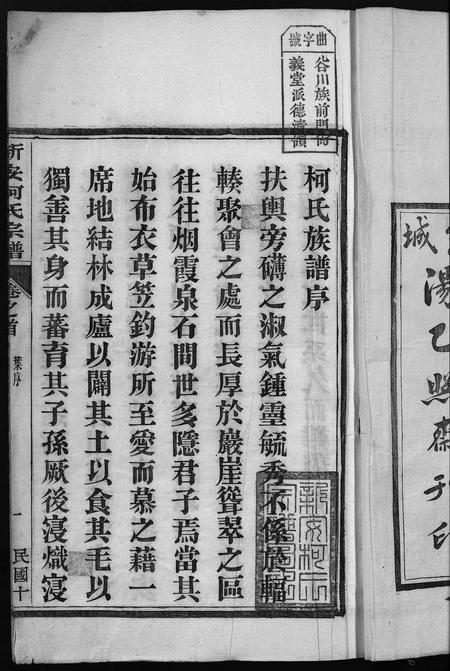 城
湯乙照齋刊印
曲字號
谷川族前門商
義堂派德清領
柯氏族譜序
扶輿旁礴之淑氣鍾靈毓秀不係於輻
輳聚會之處而長厚於巖崖聳翠之區
往往烟霞泉石間世多隱君子焉當其
始布衣草笠釣游所至愛而慕之藉一
席地結林成廬以闢其土以食其毛以
獨善其身而蕃育其子孫厥後寖熾寖
新安柯氏宗譜
卷之首
葉序
一
民國十
新安柯氏